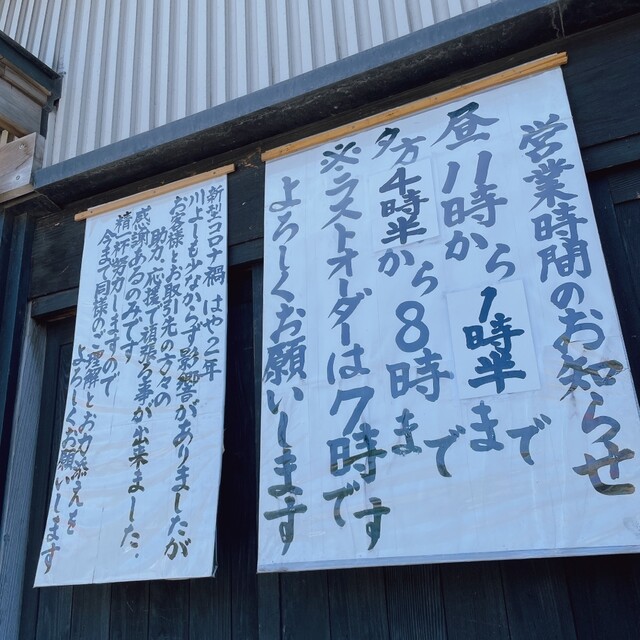 営業時間のお知らせ
昼11時から1時半まで
夕方4時半から8時まで
※ラストオーダーは7時です
よろしくお願いします
新型コロナ禍 はや2年
川上も少なからず影響がありましたが
お客様とお取引先の方々の
助力、応援で頑張る事が出来ました。
感謝あるのみです
精一杯努力しますので
今まで同様のご理解とお力添えを
よろしくお願いします